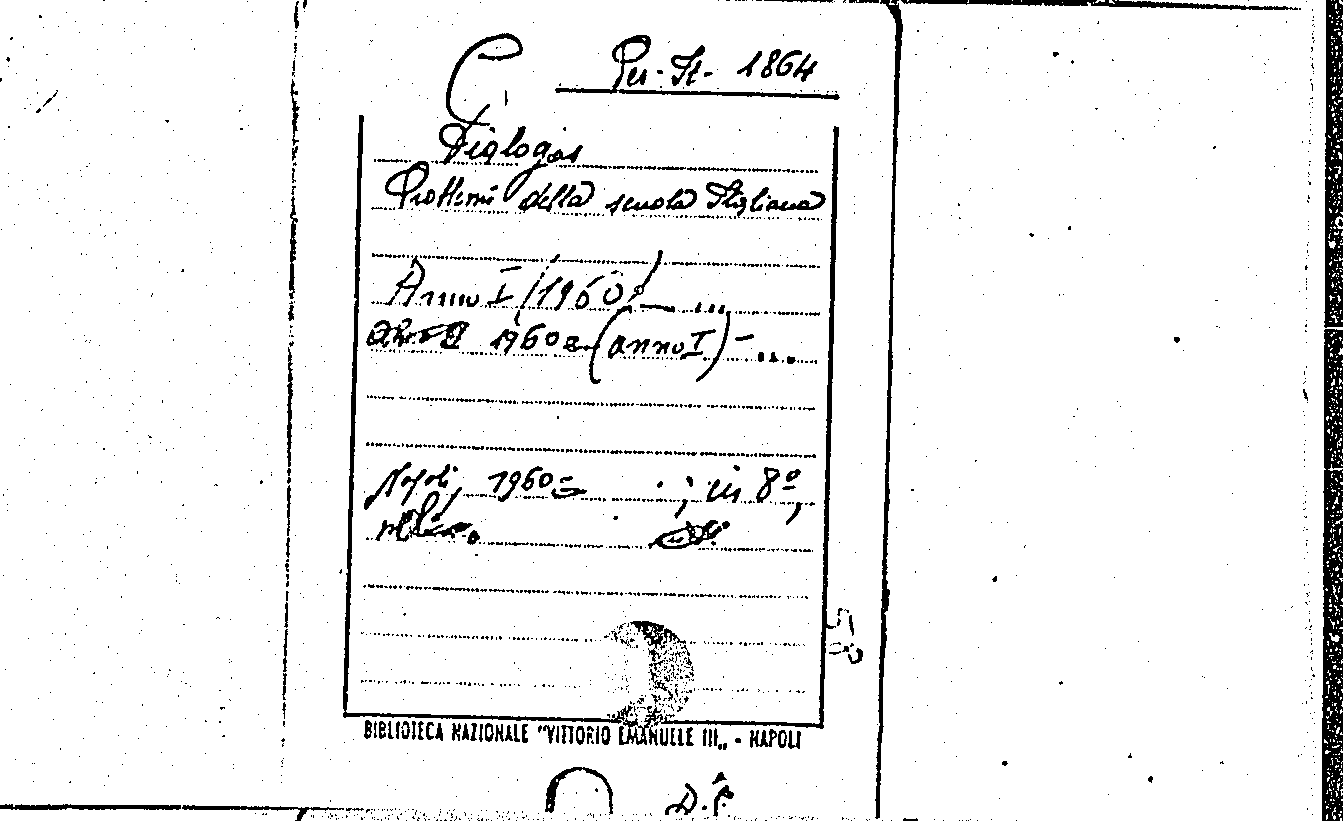 C Per. It. 1864
Dialogos
Problemi della scuola Italiana
Anno I (1960) - ...
1960 = (anno I) - ...
Napoli, 1960= ; in 8º,
BIBLIOTECA NAZIONALE "VITTORIO EMANUELE III„ - NAPOLI
D.